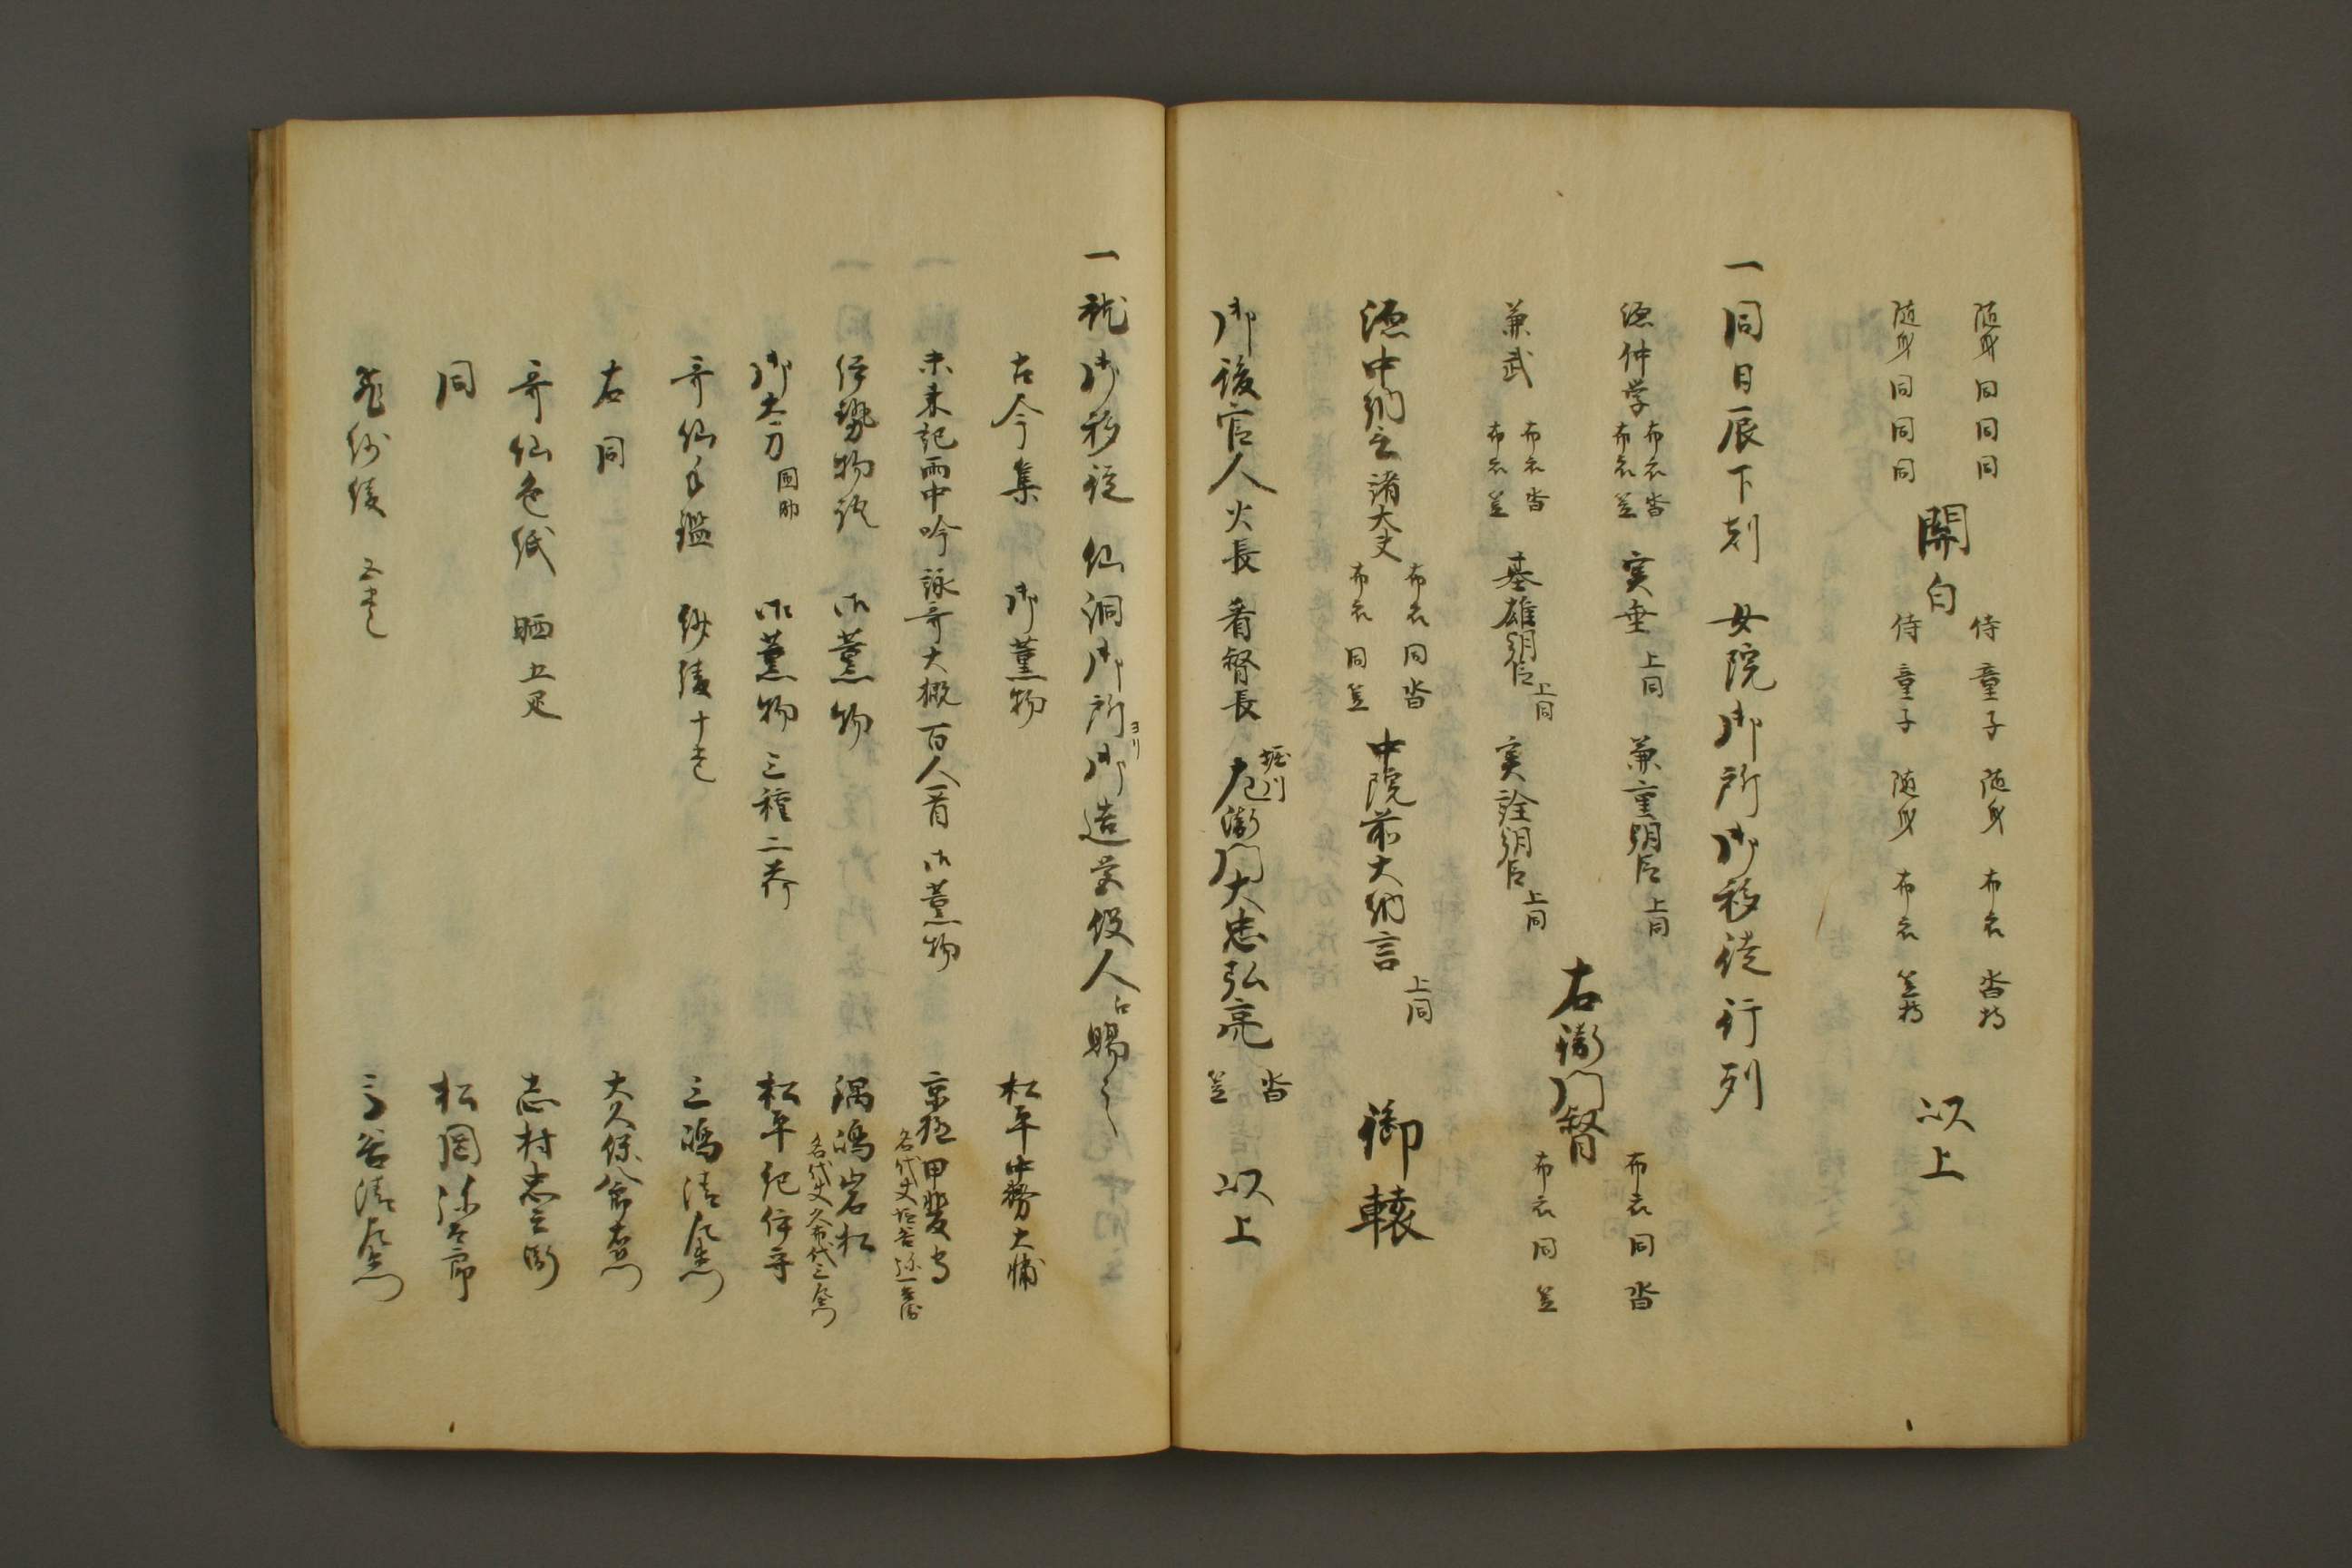 随身 同 同 同
侍 童子 随身 布衣 沓持
関白
以上
随身 同 同 同
侍 童子 随身 布衣 笠持
一同日辰下刻 女院御所御移徙行列
源仲学 布衣 沓 布衣 笠 実垂 上同 兼重朝臣 上同
右衛門督 布衣 同 沓 布衣 同 笠
兼武 布衣 沓 布衣 笠 基雄朝臣 上同 実詮朝臣 上同
源中納言 諸大夫 布衣 同 沓 布衣 同 笠 中院前大納言 上同 御轅
御後官人 火長 看督長 堀川 左衛門大志弘亮 沓 笠 以上
一就御移徙 仙洞御所ヨリ御造営役人占賜之
古今集 御薫物 松平中務大輔
未来記雨中吟 詠哥大概 百人一首 御薫物 京極甲斐守
伊勢物語 御薫物 鍋嶋岩松
御太刀 国助 御薫物 三種二荷 松平紀伊守
哥仙手鑑 紗綾十巻 三嶋清左衛門
右同
哥仙色紙 晒五疋 志村忠兵衛
同 松岡弥太郎
紗綾 五巻 谷清左衛門